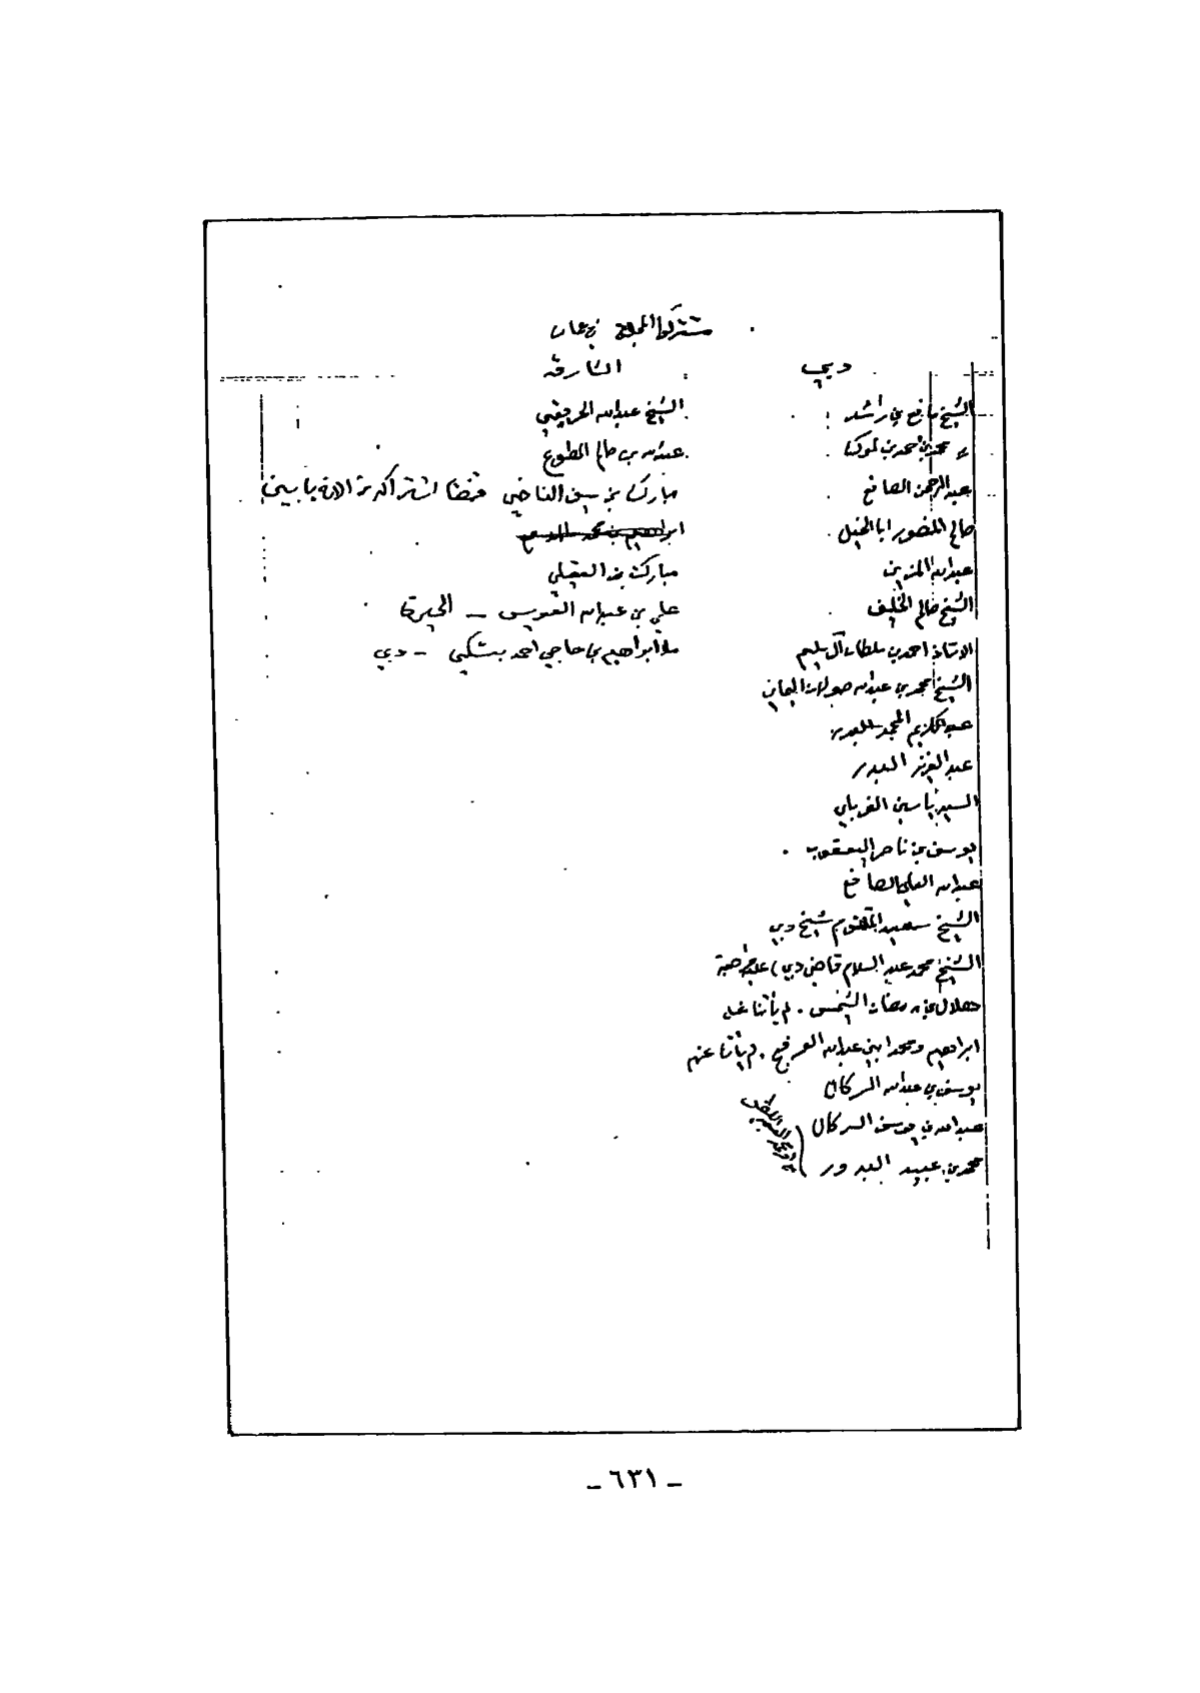 مشتركوا المجلة في عمان
دبي
الشيخ مانع بن راشد
عبد الرحمن الصانع
صالح المنصور ابا الخيل
عبدالله المزين
الشيخ صالح الخليف
الاستاذ احمد بن سلطان آل سليم
الشيخ محمد بن عبدالله
عبد الكريم
عبد العزيز البدر
السيد ياسين الغربلي
يوسف بن ناصر اليعقوب
عبدالله العلي الصانع
الشيخ سعيد المكتوم شيخ دبي
الشيخ محمد عبد السلام قاضي دبي
هلال بن رمضان الشمس . لم يأتنا
ابراهيم ومحمد ابني عبدالله العرفج . لم يأتنا عنهم
يوسف بن عبدالله السركال
عبدالله بن يوسف السركال
محمد بن عبيد البدور
الشارقة
الشيخ عبدالله الحريقي
عبدالله بن صالح المطوع
مبارك بن سيف الناخي قبضنا اشتراكه
ابراهيم بن محمد
مبارك بن العقيلي
علي بن عبدالله العويس – الحيرة
ملا ابراهيم بن حاجي احمد بستكي – دبي
– ٦٣١ –